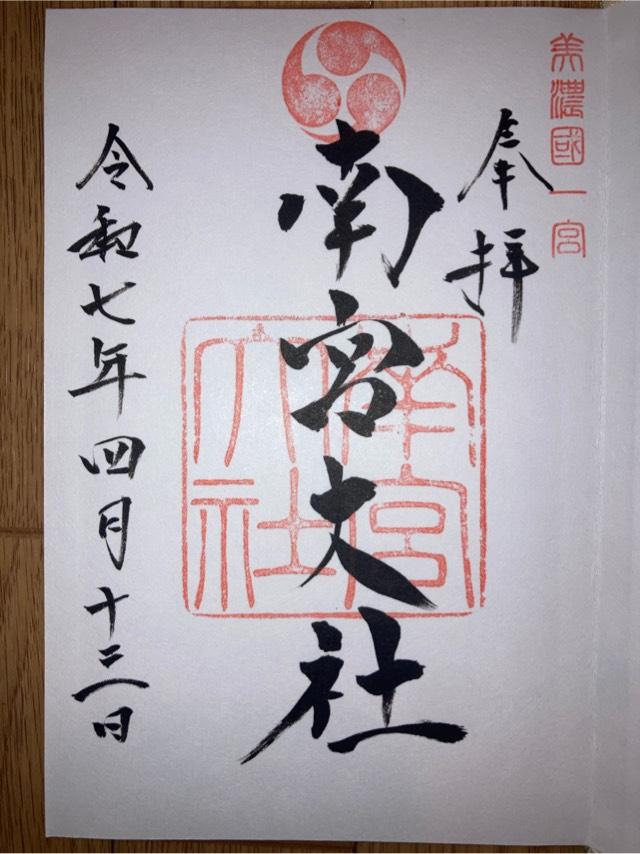 美濃國一宮
奉拝
南宮大社
南宮大社
令和七年四月十三日